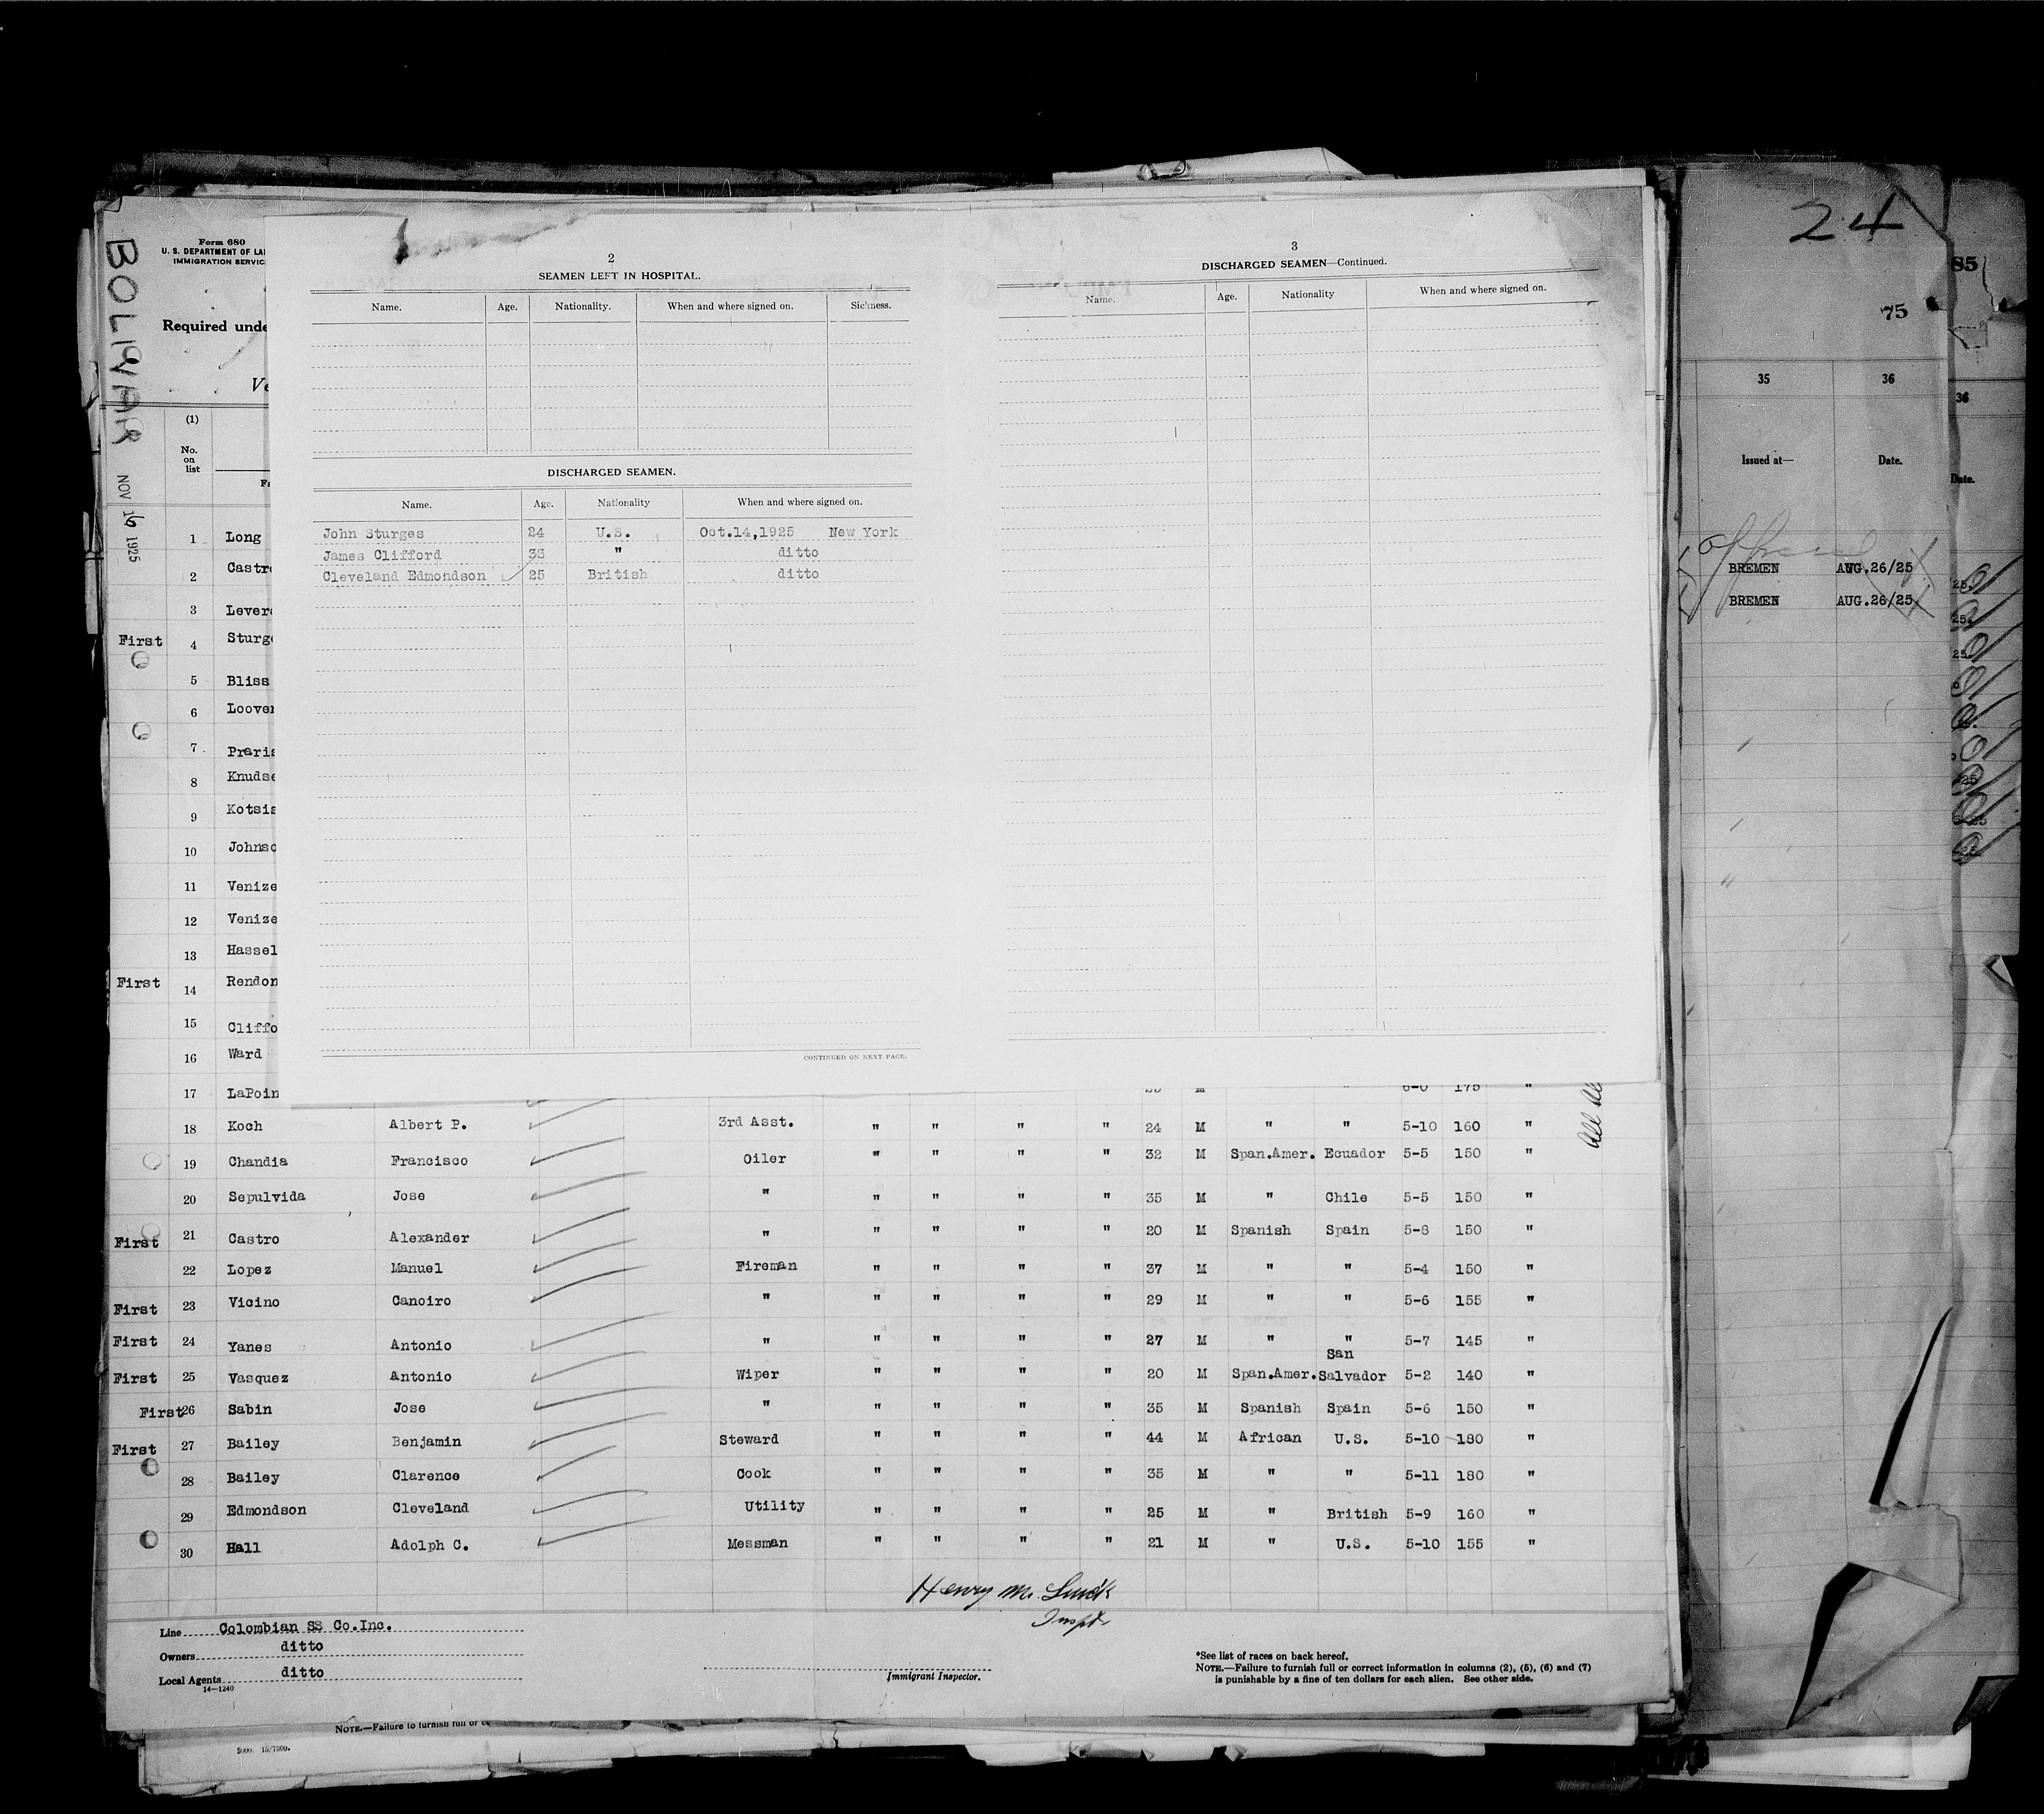 BOLIVAR NOV 16 1925
Form 680
U. S. DEPARTMENT OF LA
IMMIGRATION SERVIC
Required unde
Ve
(1)
No.
on
list
Fa
1 Long
2 Castr
3 Lever
First 4 Sturg
5 Bliss
6 Loover
7 Praris
8 Knudse
9 Kotsis
10 Johnso
11 Venize
12 Venize
13 Hassel
First 14 Rendon
15 Cliffo
16 Ward
17 LaPoin
2
SEAMEN LEFT IN HOSPITAL.
Name. Age. Nationality. When and where signed on. Sickness.
DISCHARGED SEAMEN.
Name. Age. Nationality When and where signed on.
John Sturges 24 U.S. Oct.14,1925 New York
James Clifford 33 " ditto
Cleveland Edmondson 25 British ditto
CONTINUED ON NEXT PAGE.
3
DISCHARGED SEAMEN—Continued.
Name. Age. Nationality When and where signed on.
M " 6-0 175 "
18 Koch Albert P. 3rd Asst. " " " " 24 M " " 5-10 160 "
19 Chandia Francisco Oiler " " " " 32 M Span.Amer. Ecuador 5-5 150 "
20 Sepulvida Jose " " " " " 35 M " Chile 5-5 150 "
First 21 Castro Alexander " " " " " 20 M Spanish Spain 5-8 150 "
22 Lopez Manuel Fireman " " " " 37 M " " 5-4 150 "
First 23 Vicino Canoiro " " " " " 29 M " " 5-6 155 "
First 24 Yanes Antonio " " " " " 27 M " " 5-7 145 "
San
First 25 Vasquez Antonio Wiper " " " " 20 M Span.Amer. Salvador 5-2 140 "
First 26 Sabin Jose " " " " " 35 M Spanish Spain 5-6 150 "
First 27 Bailey Benjamin Steward " " " " 44 M African U.S. 5-10 180 "
28 Bailey Clarence Cook " " " " 35 M " " 5-11 180 "
29 Edmondson Cleveland Utility " " " " 25 M " British 5-9 160 "
30 Hall Adolph C. Messman " " " " 21 M " U.S. 5-10 155 "
Henry M.
Inspt.
Line Colombian SS Co.Inc.
Owners ditto
Local Agents ditto
14—1240
Immigrant Inspector.
*See list of races on back hereof.
NOTE.—Failure to furnish full or correct information in columns (2), (5), (6) and (7)
is punishable by a fine of ten dollars for each alien. See other side.
NOTE.—Failure to furnish full or c
24
75
35 36
Issued at— Date.
BREMEN AUG.26/25
BREMEN AUG.26/25
85
36
Date.